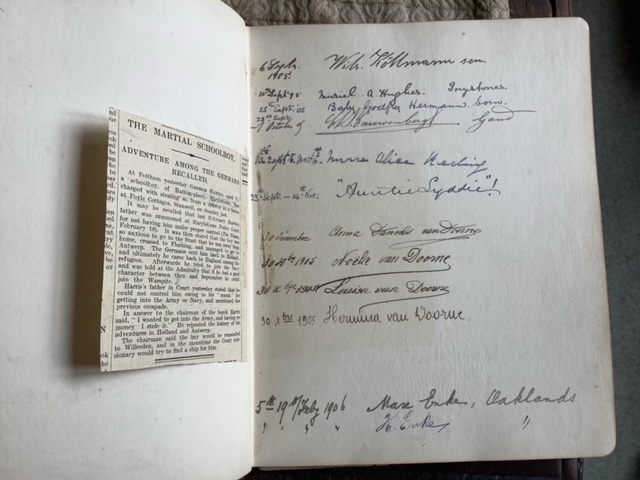 THE MARTIAL SCHOOLBOY.
ADVENTURE AMONG THE GERMANS
RECALLED.
At Feltham yesterday George Harris,
a schoolboy, of
charged with stealing
at Foyle Cottages, Stanwell, on
It may be recalled that last February Harris's
father was summoned at Police Court
for not having him under proper control (The
February 18). It was then stated that the boy was
so anxious to go to the front that he ran away from
home, crossed to Flushing, and managed to get to
Antwerp. The Germans sent him back to Holland,
and ultimately he came back to England among the
refugees. Afterwards he tried to join the Navy,
and was told at the Admiralty that if he had a good
character between then and September he could
join the Warspite.
Harris's father in Court yesterday stated that he
could not control him owing to his "mania" for
getting into the Army or Navy, and mentioned the
previous escapade.
In answer to the chairman of the bench Harris
said, "I wanted to get into the Army, and having no
money I stole it." He repeated the history of his
adventures in Holland and Antwerp.
The chairman said the boy would be remanded
to Willesden, and in the meantime the Court mis-
sionary would try to find a ship for him.
6 Septr. Wilh. Köllmann sen.
1905.
Sept. 05 Muriel A. Hughes. Greystones.
25th Septr. 05 Baby Godfrey Hermann born.
October Gand
Nurse Alice Keeling
Sept. – 14th Nov: "Auntie Lyddie"!
30 Anna van Doorne
30 1905 Noelie van Doorne
30 Louisa van Doorne
30 xbre 1905 Hermina van Doorne
5th 19th/Feby 1906 Max Enke, Oaklands
" " " H. Enke, "